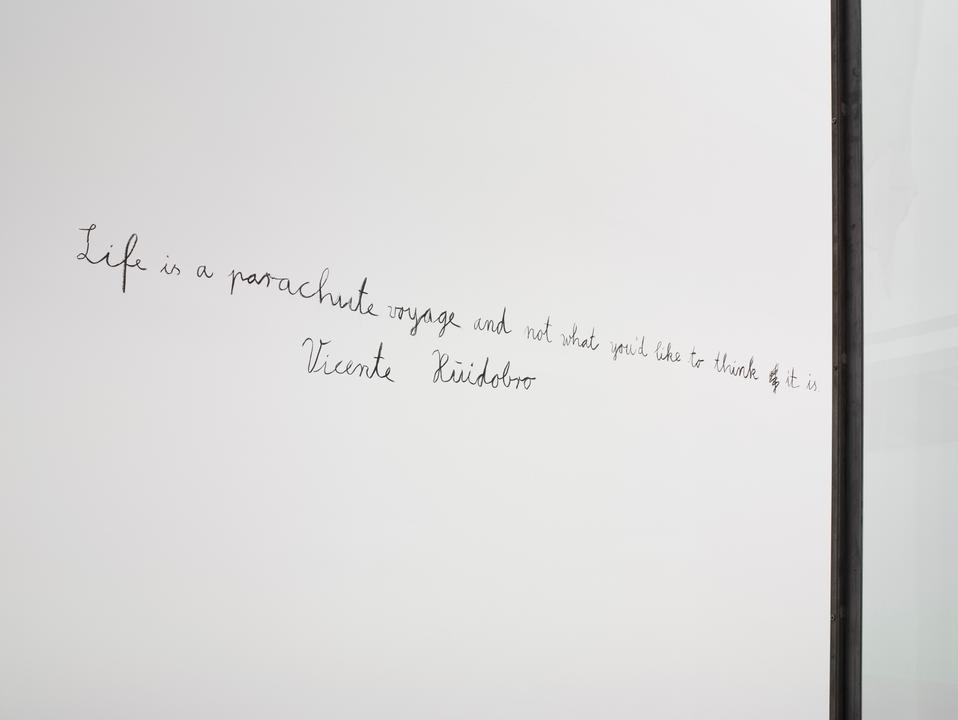 Life is a parachute voyage and not what you'd like to think it is
Vicente Huidobro